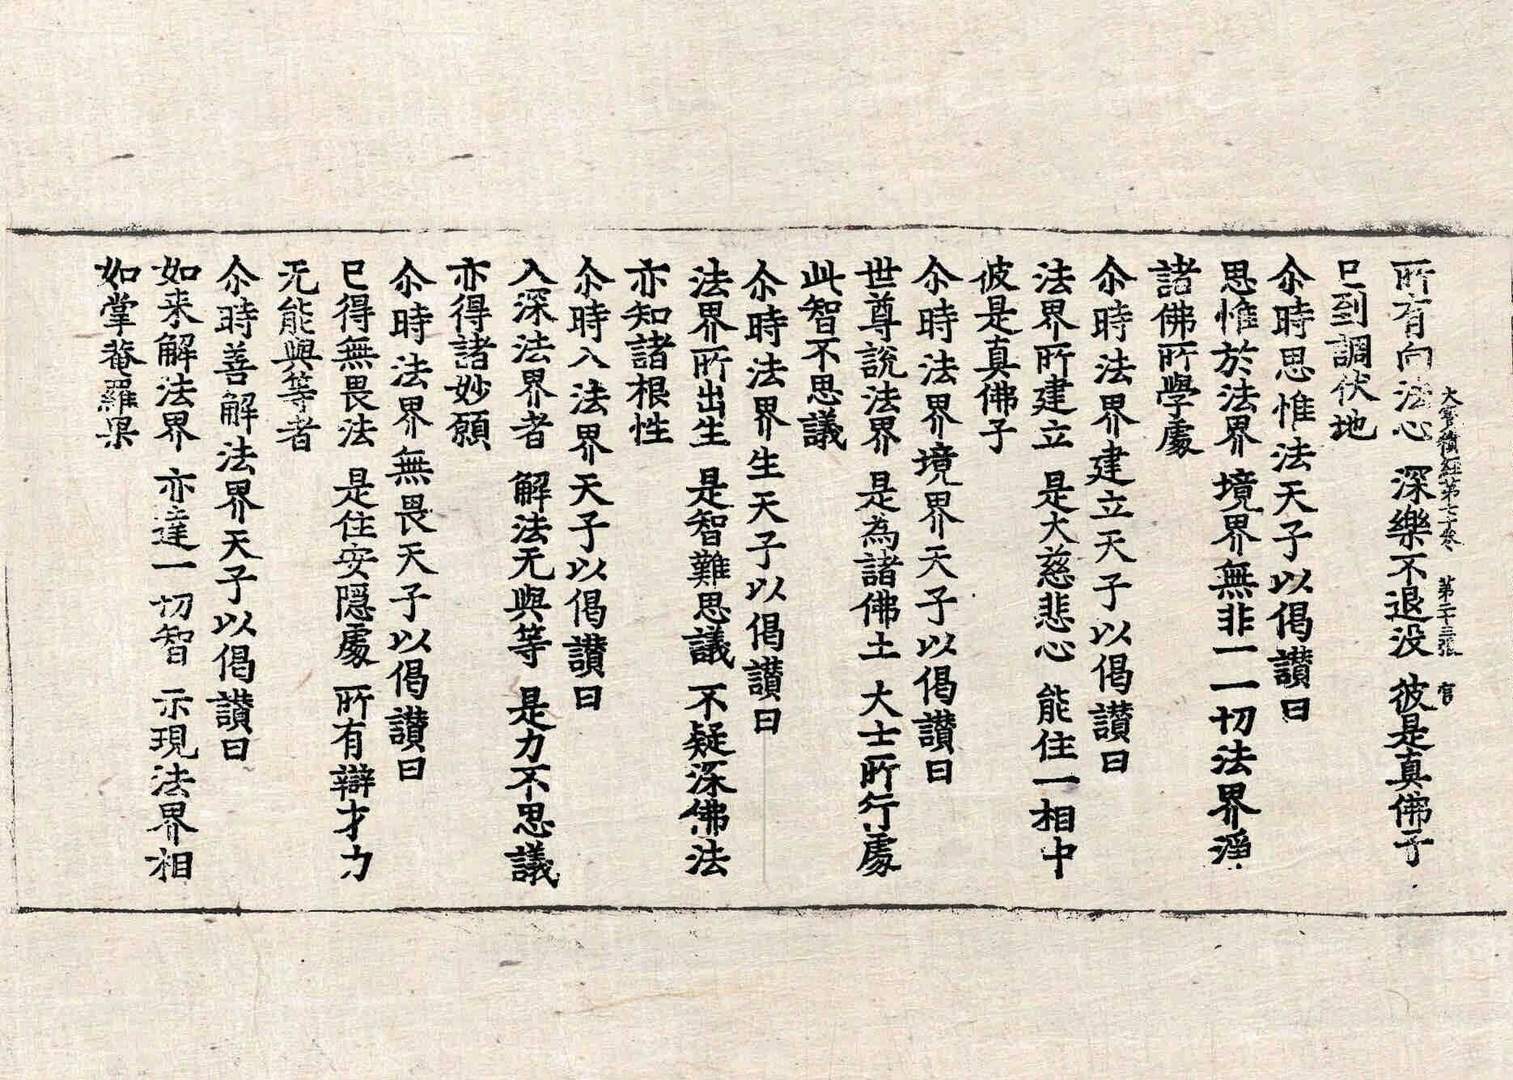 大寶積經第七十卷 第二十三張 官
所有向法心 深樂不退没 彼是真佛子
已到調伏地
尒時思惟法天子以偈讃曰
思惟於法界 境界無非一 一切法界淨
諸佛所學處
尒時法界建立天子以偈讃曰
法界所建立 是大慈悲心 能住一相中
彼是真佛子
尒時法界境界天子以偈讃曰
世尊說法界 是為諸佛土 大士所行處
此智不思議
尒時法界生天子以偈讃曰
法界所出生 是智難思議 不疑深佛法
亦知諸根性
尒時入法界天子以偈讃曰
入深法界者 解法无與等 是力不思議
亦得諸妙願
尒時法界無畏天子以偈讃曰
已得無畏法 是住安隱處 所有辯才力
无能與等者
尒時善解法界天子以偈讃曰
如来解法界 亦達一切智 示現法界相
如掌菴羅果